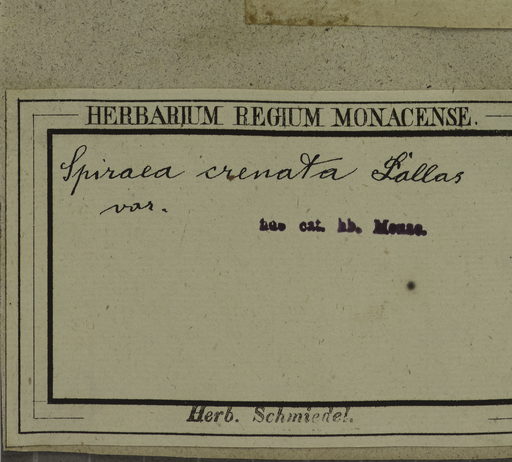 HERBARIUM REGIUM MONACENSE.
Spiraea crenata Pallas
var.
huc cat. hb. Monac.
Herb. Schmiedel.